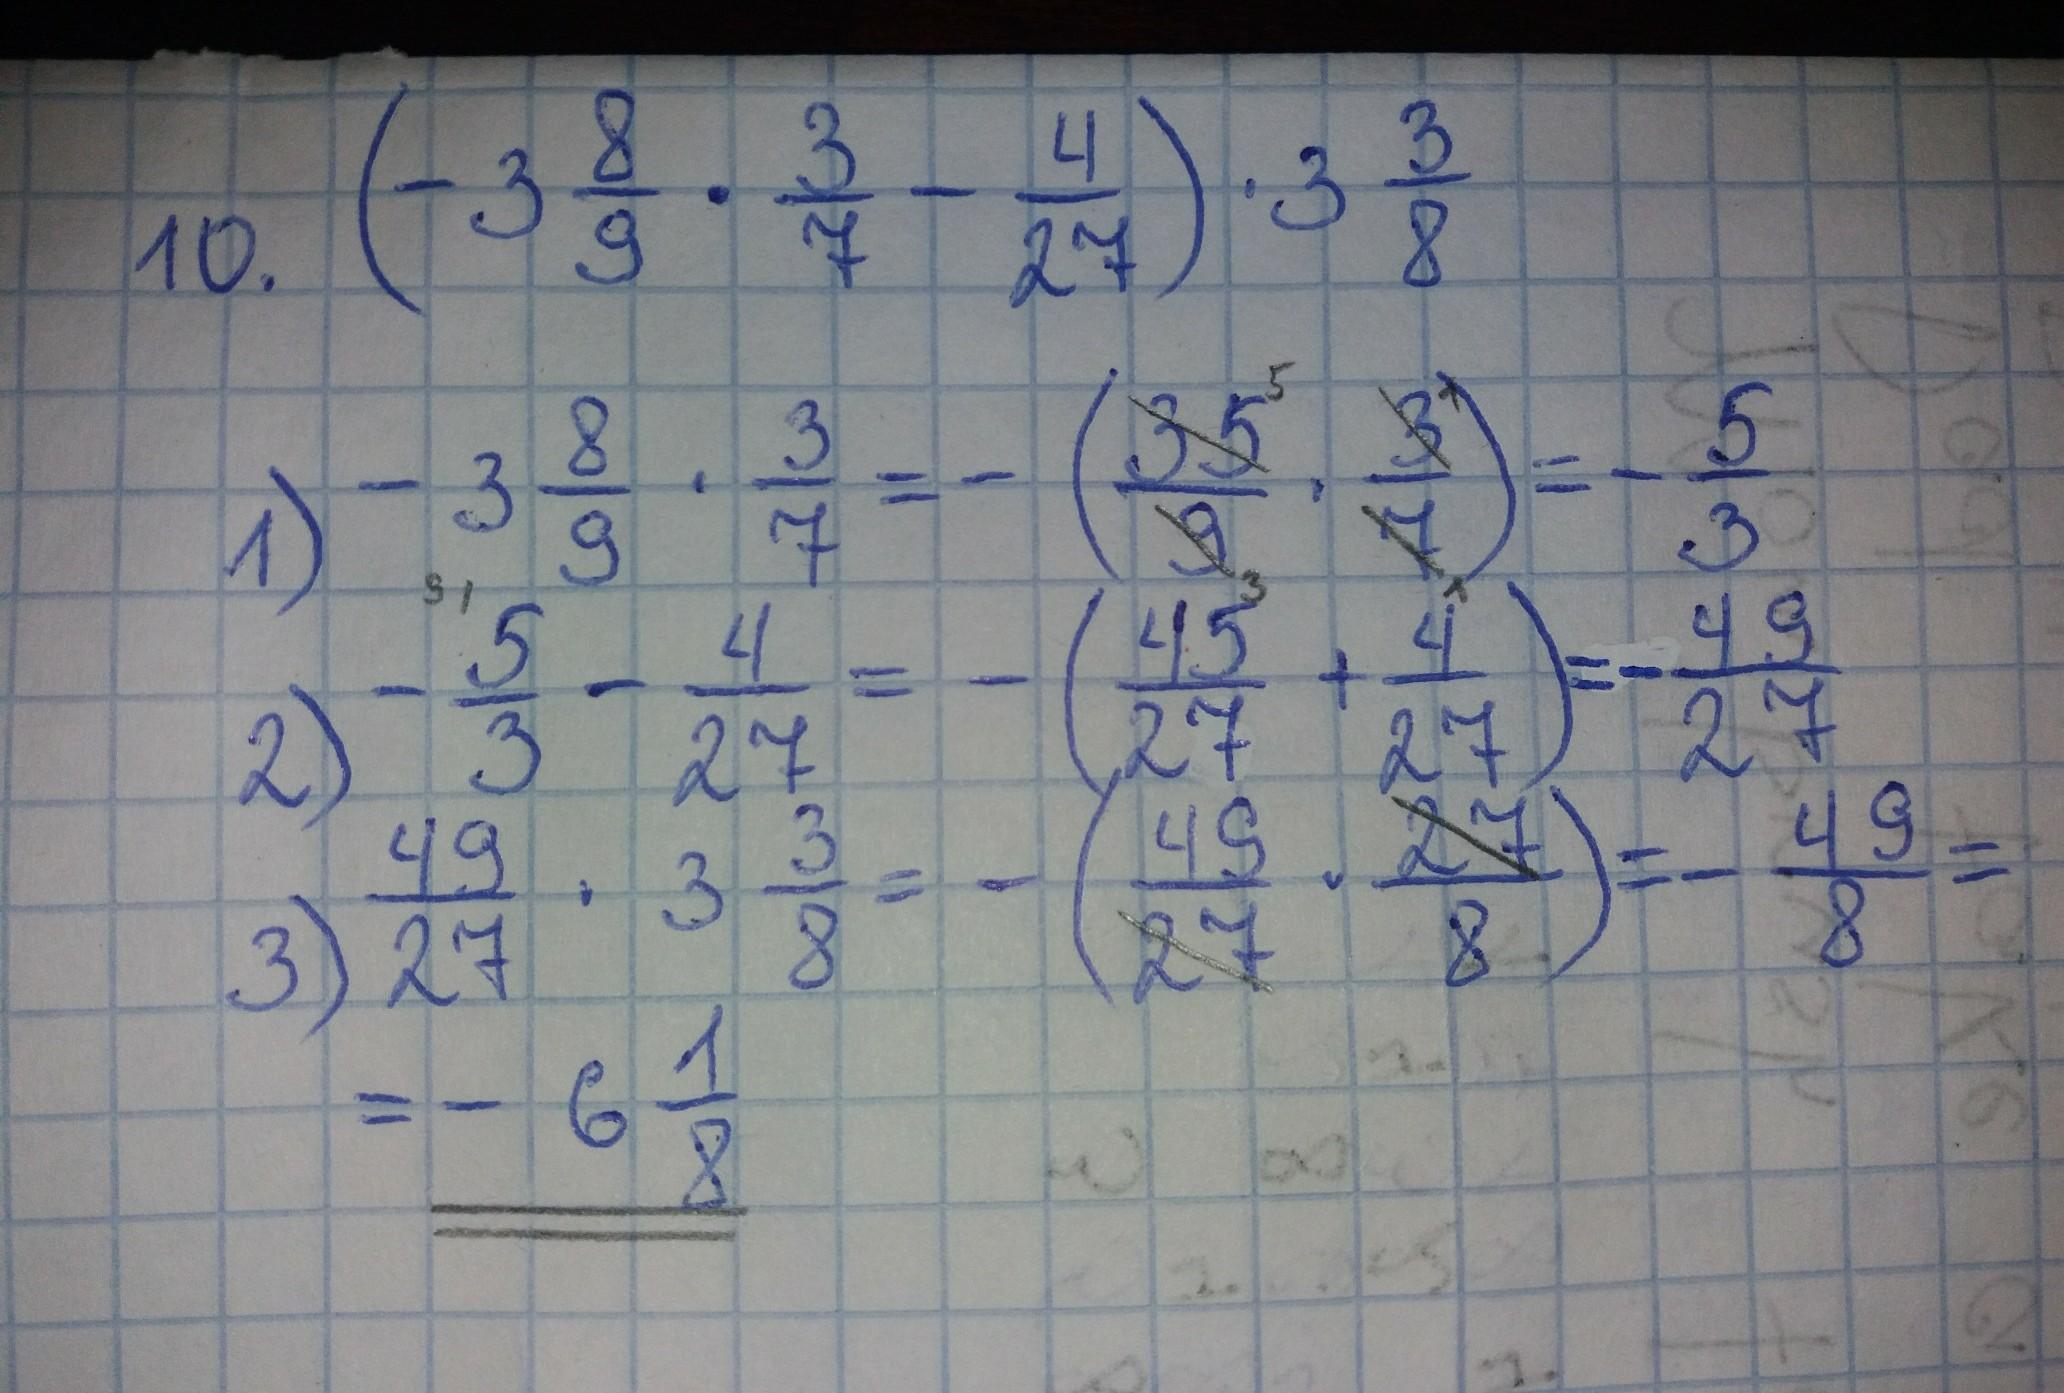 10. (-3 8/9 · 3/7 - 4/27) · 3 3/8
1) -3 8/9 · 3/7 = -(35/9 · 3/7) = -5/3
2) -5/3 - 4/27 = -(45/27 + 4/27) = -49/27
3) 49/27 · 3 3/8 = -(49/27 · 27/8) = -49/8 =
= -6 1/8